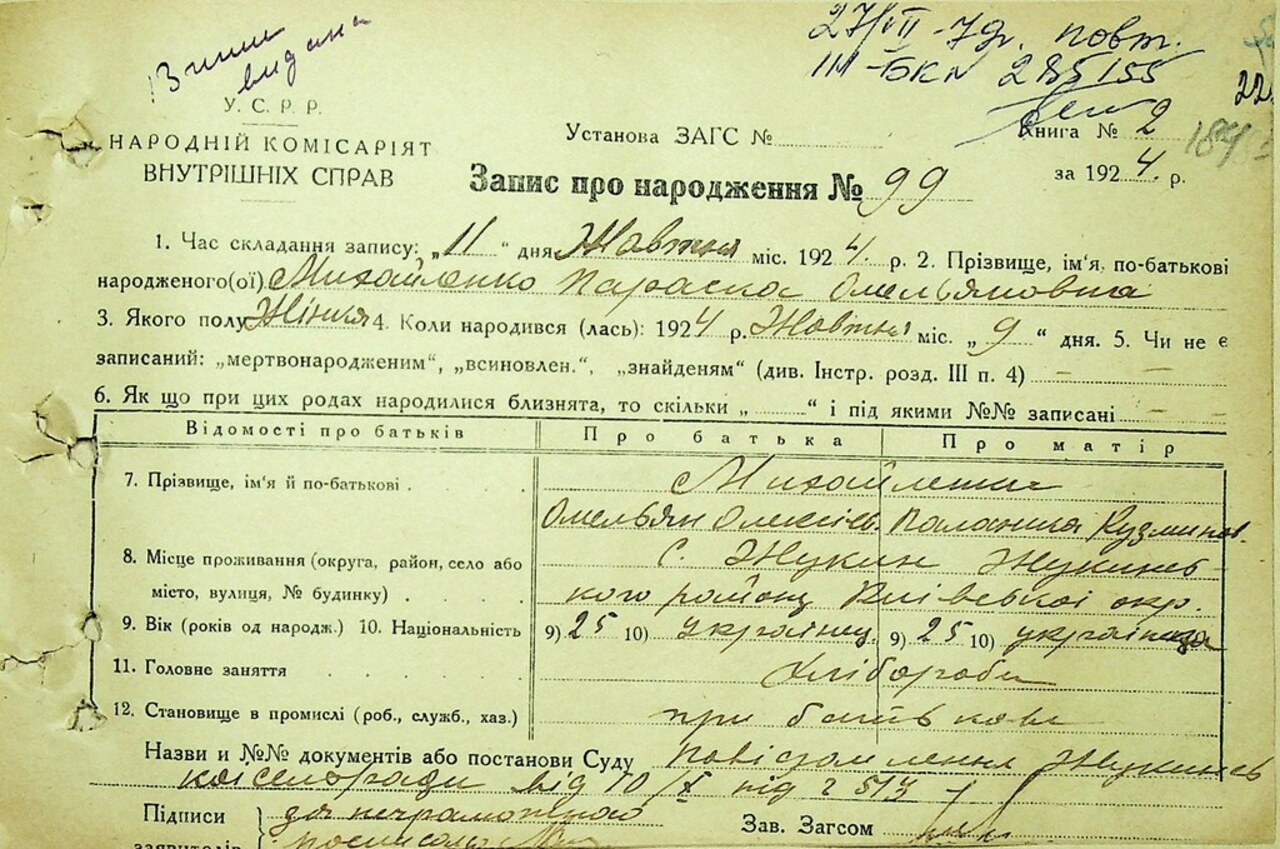 27/VII-79г. повт.
III-БК № 285155
видана
У. С. Р. Р.
НАРОДНІЙ КОМІСАРІЯТ
ВНУТРІШНІХ СПРАВ
22
184
Установа ЗАГС №
Книга № 2
за 1924. р.
Запис про народження № 99
1. Час складання запису: „11“ дня Жовтня міс. 1924. р. 2. Прізвище, ім'я, по-батькові
народженого(ої) Михайленко Параска Омельяновна
3. Якого полу Жіночя 4. Коли народився (лась): 1924 р. Жовтня міс. „9“ дня. 5. Чи не є
записаний: „мертвонародженим“, „всиновлен.“, „знайденям“ (див. Інстр. розд. III п. 4) — —
6. Як що при цих родах народилися близнята, то скільки „ “ і під якими №№ записані — —
Відомості про батьків Про батька Про матір
7. Прізвище, ім'я й по-батькові Михайленки
Омельян Олексієв. Палажка Кузминов.
8. Місце проживання (округа, район, село або С. Жукин Жукинсь-
місто, вулиця, № будинку) кого району Київської окр.
9. Вік (років од народж.) 10. Національність 9) 25 10) українец. 9) 25 10) українка
11. Головне заняття Хлібороби
12. Становище в промислі (роб., служб., хаз.) при батькові
Назви и №№ документів або постанови Суду повідомлення Жукинсь
кої сельради від 10/X під № 513
Підписи за неграмотного
заявителів
Зав. Загсом